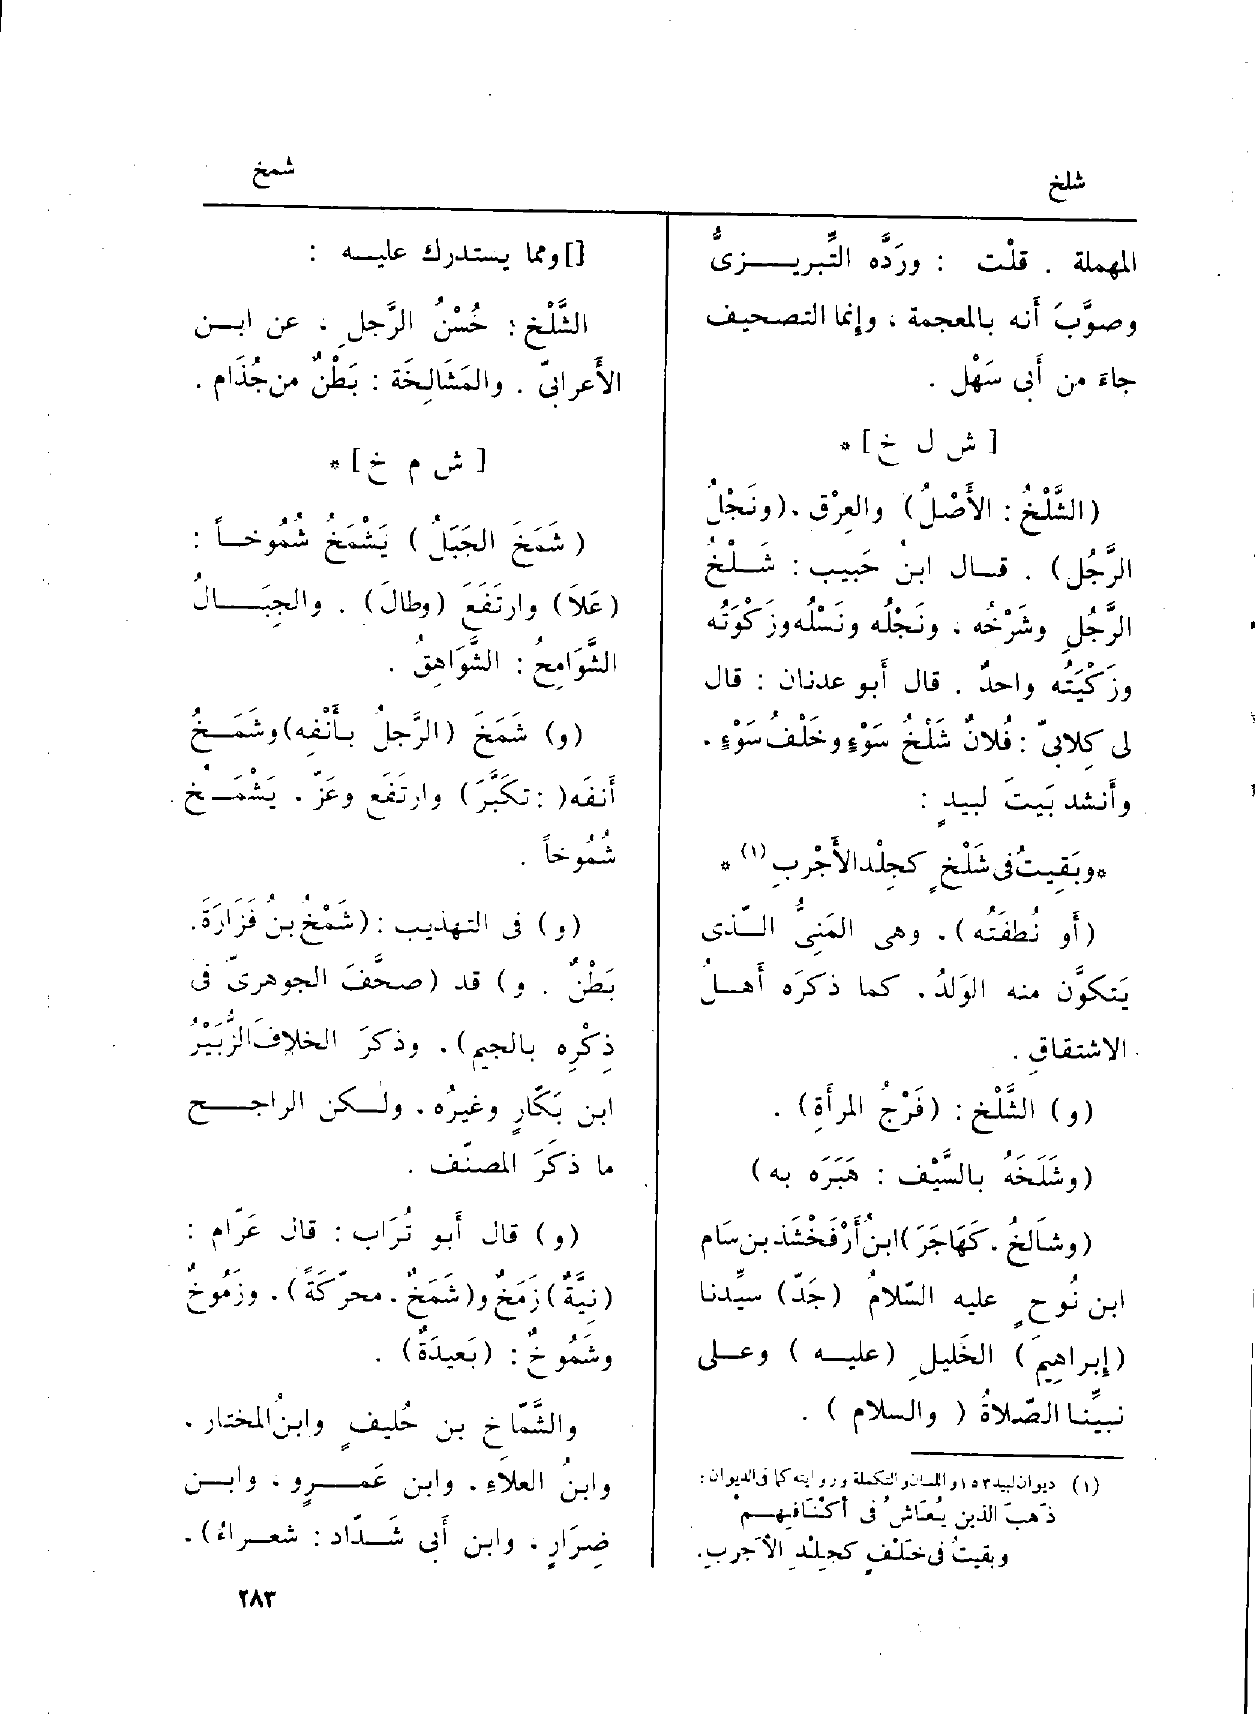 شلخ
شمخ
المهملة . قلْت : وردَّه التِّبريزىُّ
وصوَّبَ أنه بالمعجمة ، وإنما التصحيف
جاءَ من أَبى سَهْل .
[ ش ل خ ] *
(الشَّلْخُ : الأَصْلُ) والعِرْق ، (ونَجْلُ
الرَّجُل) . قال ابنُ حَبيب : شَلْخُ
الرَّجُلِ وشَرْخُه ، ونَجْلُه ونَسْلُه وزَكْوَتُه
وزَكْيَتُه واحدٌ . قال أَبو عدنان : قال
لى كِلابىّ : فُلانٌ شَلْخُ سَوْءٍ وخَلْفُ سَوْءٍ .
وأَنشد بَيتَ لبيدٍ :
* وبَقِيتُ فى شَلْخٍ كجِلْد الأَجْرب (١) *
(أَو نُطفَتُه) . وهى المَنِىُّ الّذى
يَتكوَّن منه الوَلدُ ، كما ذكرَه أَهلُ
الاشتقاقِ .
(و) الشَّلْخ : (فَرْجُ المرأَةِ) .
(وشَلَخَهُ بالسَّيْف : هَبَرَه به)
(وشالَخُ ، كهَاجَرَ) ابنُ أَرْفَخْشَذ بن سَام
ابن نُوحٍ عليه السّلامُ (جَدّ) سيِّدنا
(إِبراهِيمَ) الخَليلِ (عليه) وعلى
نبيِّنا الصّلاةُ ( والسلام ) .
(١) ديوان لبيد ١٥٣ واللسان والتكملة وروايته كما فى الديوان :
ذَهبَ الذين يُعَاشُ فى أكْنَافِهِم
وبقيتُ فى خَلْفٍ كجِلْدِ الأجربِ .
[] ومما يستدرك عليه :
الشَّلْخ : حُسْنُ الرَّجلِ ، عن ابن
الأَعرابىّ . والمَشَالِخَة : بَطْنٌ من جُذَام .
[ ش م خ ] *
( شَمَخَ الجَبَلُ ) يَشْمَخُ شُمُوخاً :
(عَلاَ) وارتَفَعَ (وطالَ) . والجِبَالُ
الشَّوامِخُ : الشَّوَاهِقُ .
(و) شَمَخَ (الرَّجلُ بأَنْفِه) وشَمَخَ
أَنفَه( : تكَبَّرَ) وارتَفَع وعَزّ . يَشْمَخ
شُمُوخاً .
(و) فى التهذيب : (شَمْخُ بنُ فَزَارَةَ .
بَطْنٌ . و) قد (صحَّفَ الجوهرىّ فى
ذِكْرِه بالجيم) . وذكَرَ الخلافَ الزُّبَيْرُ
ابن بَكّارٍ وغيرُه . ولكن الراجح
ما ذكَرَ المصنّف .
(و) قال أَبو تُرَاب : قال عَرّام :
(نِيَّةٌ) زَمَخٌ و(شَمَخٌ . محرّكَةً) . وزَمُوخٌ
وشَمُوخٌ : (بَعيدَةٌ) .
والشَّمّاخ بن حُليفٍ وابنُ المختار .
وابنُ العلاءِ . وابن عَمرٍو . وابن
ضِرَارٍ . وابن أَبى شَدّاد : شعراءُ) .
٢٨٣